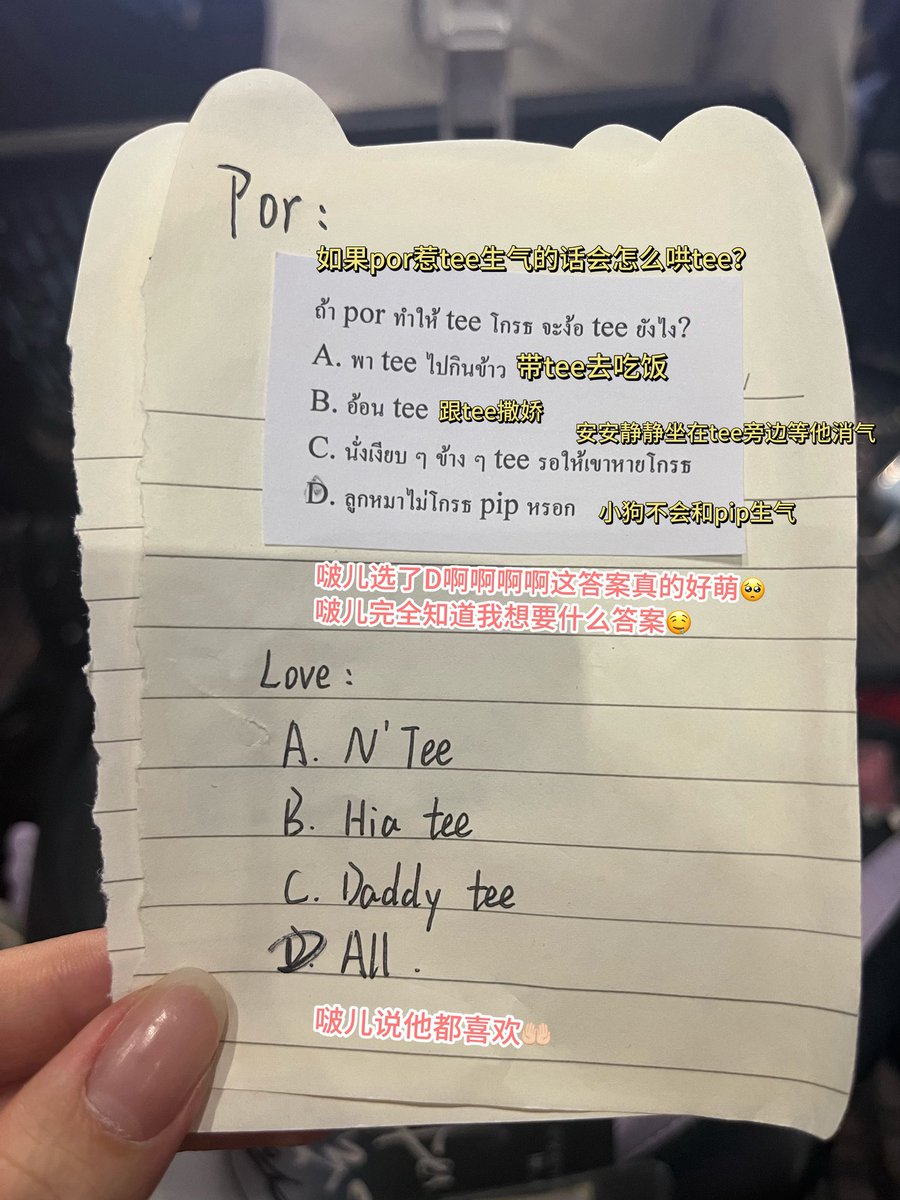 Por:
如果por惹tee生气的话会怎么哄tee?
ถ้า por ทำให้ tee โกรธ จะง้อ tee ยังไง?
A. พา tee ไปกินข้าว 带tee去吃饭
B. อ้อน tee 跟tee撒娇
安安静静坐在tee旁边等他消气
C. นั่งเงียบ ๆ ข้าง ๆ tee รอให้เขาหายโกรธ
D. ลูกหมาไม่โกรธ pip หรอก 小狗不会和pip生气
啵儿选了D啊啊啊啊这答案真的好萌🥺
啵儿完全知道我想要什么答案🤤
Love:
A. N'Tee
B. Hia tee
C. Daddy tee
D. All.
啵儿说他都喜欢🤲🏻